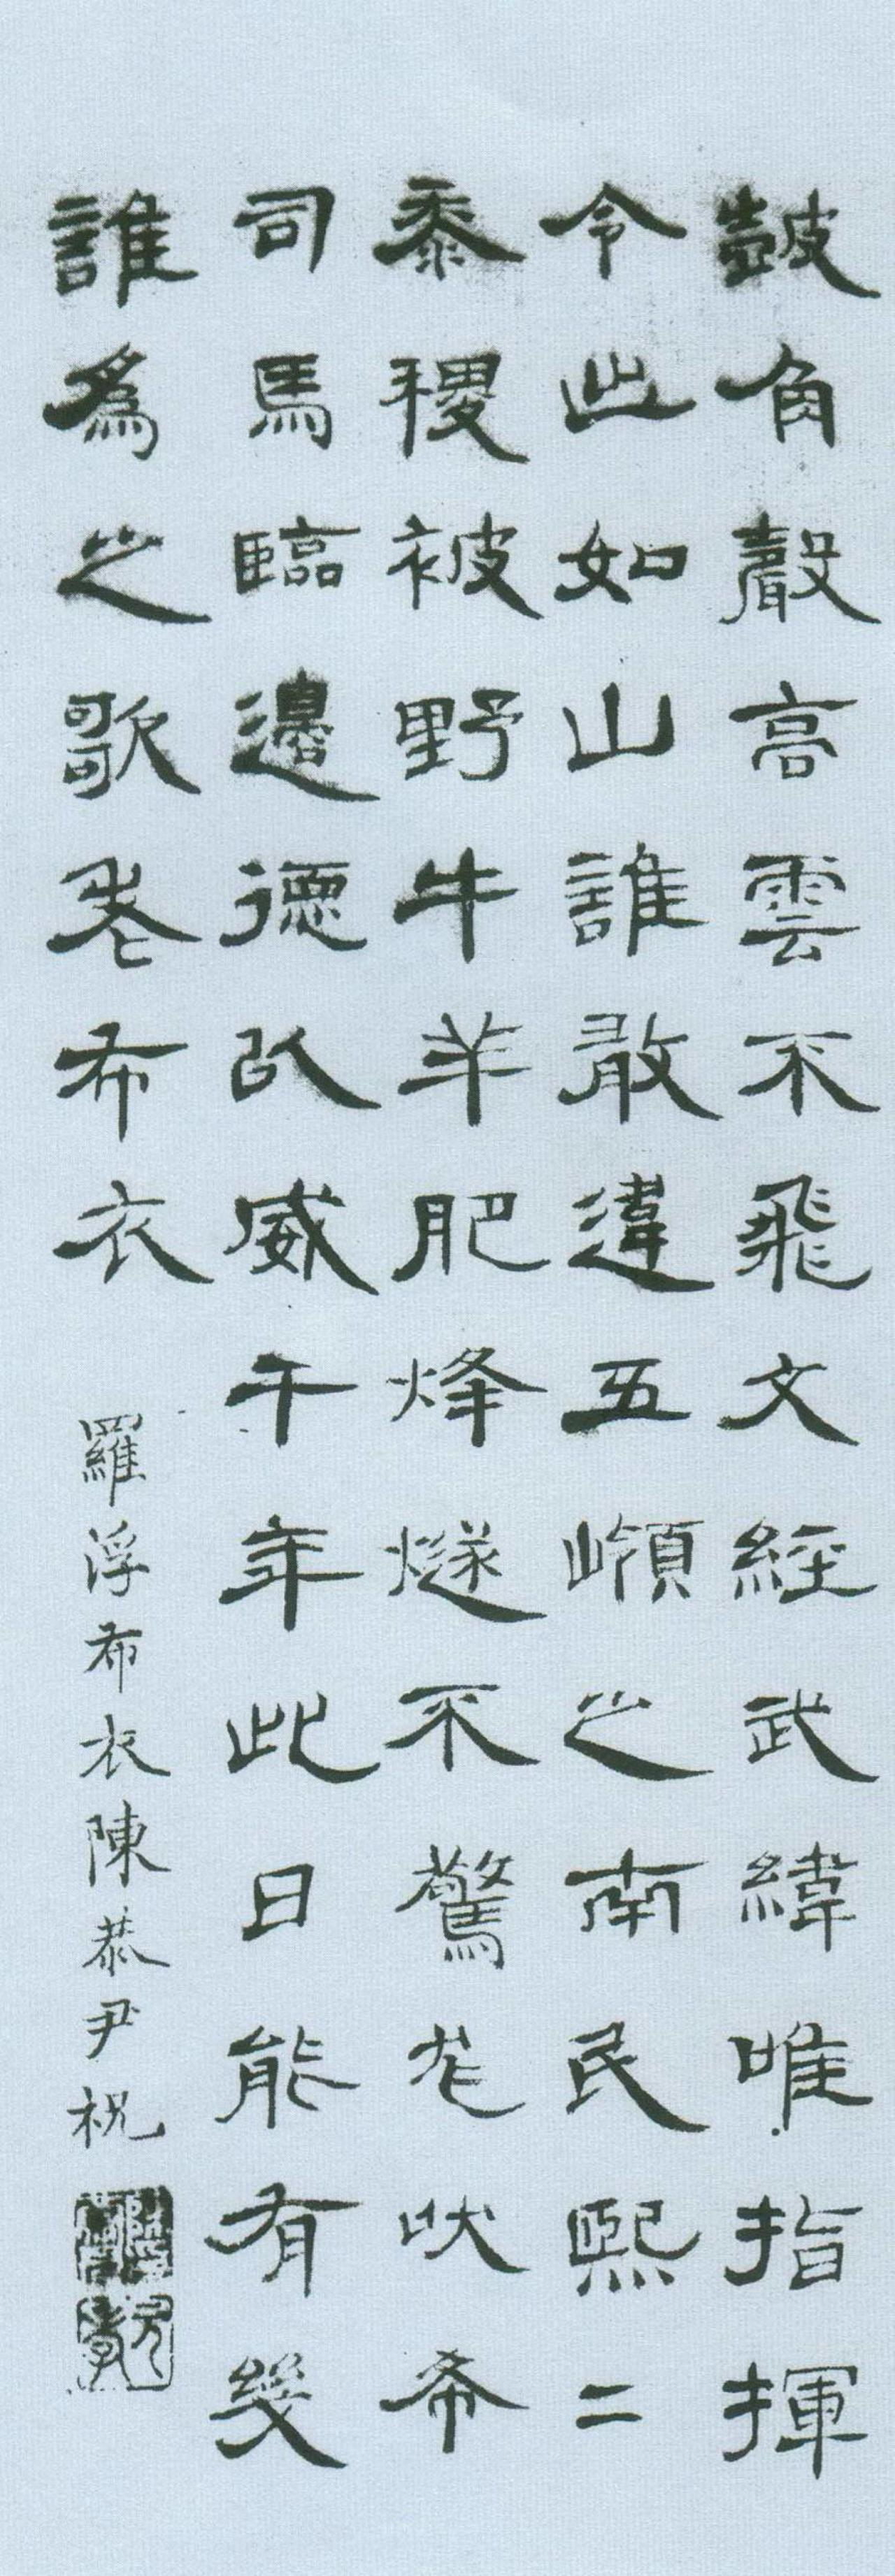 鼓角聲高雲不飛文經武緯唯指揮
令出如山誰敢違五嶺之南民熙二
黍稷被野牛羊肥烽燧不驚尨吠希
司馬臨邊德以威千年此日能有幾
誰爲之歌老布衣
羅浮布衣陳恭尹祝